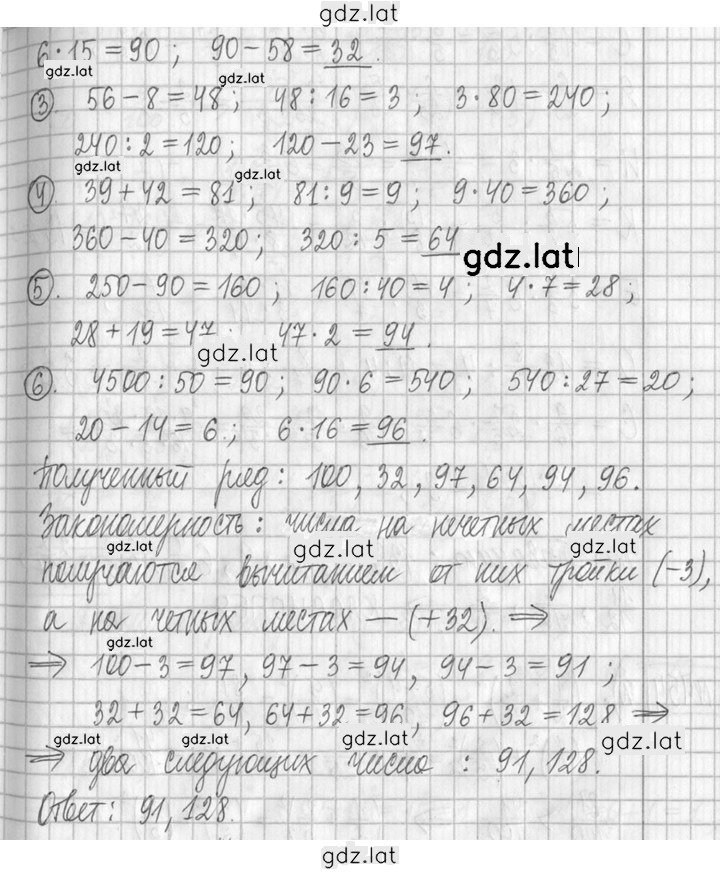 gdz.lat
6·15=90; 90-58=32.
gdz.lat gdz.lat
③. 56-8=48; 48:16=3; 3·80=240;
240:2=120; 120-23=97.
gdz.lat gdz.lat
④. 39+42=81; 81:9=9; 9·40=360;
360-40=320; 320:5=64
gdz.lat
⑤. 250-90=160; 160:40=4; 4·7=28;
28+19=47 47·2=94.
gdz.lat
⑥. 4500:50=90; 90·6=540; 540:27=20;
20-14=6; 6·16=96.
Полученный ряд: 100, 32, 97, 64, 94, 96.
Закономерность: числа на нечетных местах
gdz.lat gdz.lat gdz.lat
получаются вычитанием от них тройки (-3),
а на четных местах — (+32). ⇒
gdz.lat
⇒ 100-3=97, 97-3=94, 94-3=91;
32+32=64, 64+32=96, 96+32=128 ⇒
gdz.lat gdz.lat gdz.lat gdz.lat
⇒ два следующих числа: 91, 128.
Ответ: 91, 128.
gdz.lat